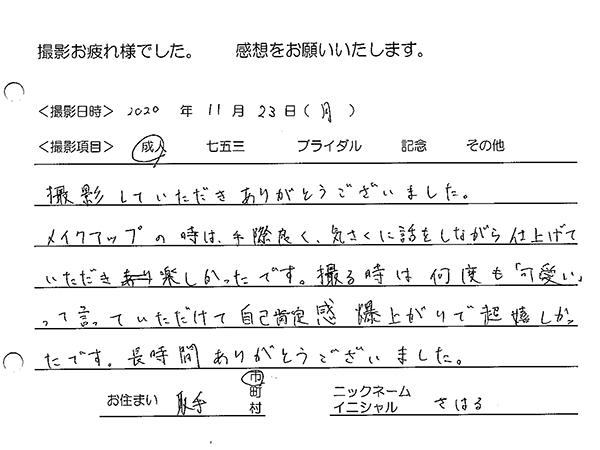 撮影お疲れ様でした。 感想をお願いいたします。
＜撮影日時＞ 2020 年 11 月 23 日(月)
＜撮影項目＞ 成人 七五三 ブライダル 記念 その他
撮影していただきありがとうございました。
メイクアップの時は、手際良く、気さくに話をしながら仕上げて
いただき楽しかったです。撮る時は何度も「可愛い」
って言っていただけて自己肯定感爆上がりで超嬉しかっ
たです。長時間ありがとうございました。
お住まい 取手 市町村 ニックネーム イニシャル さはる